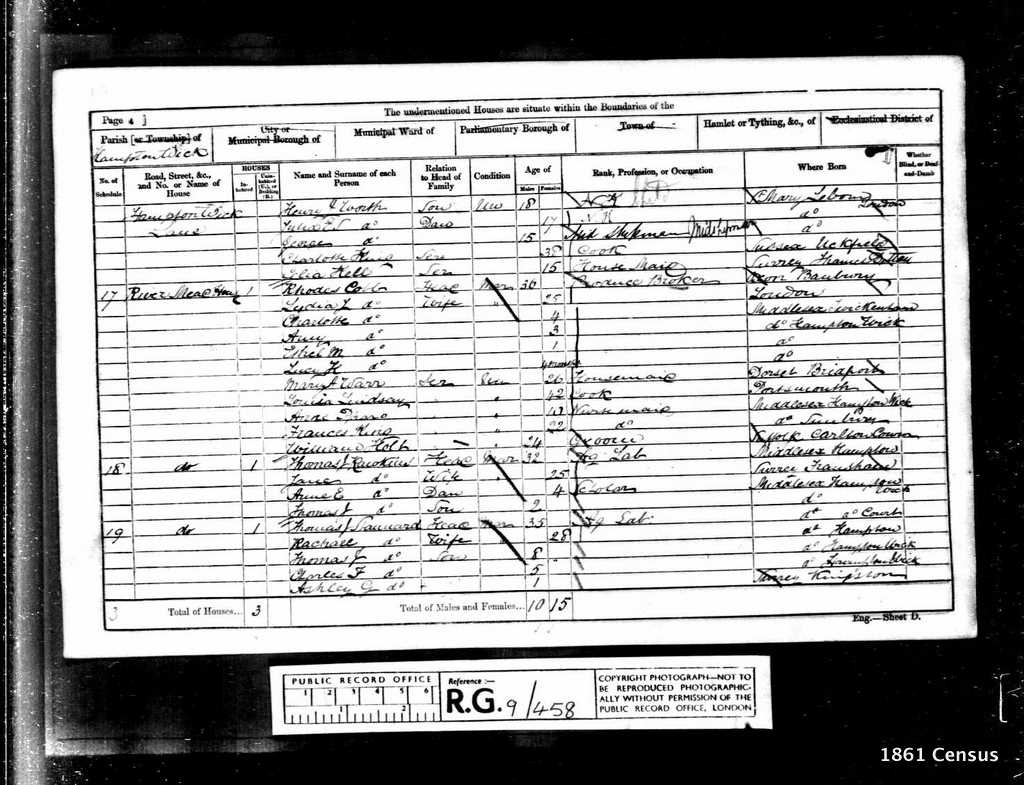 The undermentioned Houses are situate within the Boundaries of the
Page 4
Parish [or Township] of
City or Municipal Borough of
Municipal Ward of
Parliamentary Borough of
Town of
Hamlet or Tything, &c., of
Ecclesiastical District of
Hampton Wick
No. of Schedule
Road, Street, &c., and No. or Name of House
HOUSES
Inhabited
Uninhabited (U.), or Building (B.)
Name and Surname of each Person
Relation to Head of Family
Condition
Age of
Males
Females
Rank, Profession, or Occupation
Where Born
Whether Blind, or Deaf-and-Dumb
Hampton Wick Henry Worth Son Un 18
Lane do 17 do
George do 15 Midshipman do
Charlotte King Ser 38 Cook Sussex Uckfield
Kell Ser 15 House Maid Surrey
17 River Mead 1 Rhodes Cobb Head Mar 36 Produce Broker Oxon Banbury
Lydia do Wife 25 London
Charlotte do 4 Middlesex Twickenham
Amy do 3 do Hampton Wick
Ethel M do 1 do
Lucy H do 4 months do
Mary A Warr Ser Un 26 Housemaid Dorset Bridport
Louisa Lindsay 42 Cook Portsmouth
Nursemaid Middlesex Hampton Wick
Frances King 22 do do Sunbury
William Holt 24 Groom
18 do 1 Thomas J Hawkins Head Mar 32 Ag Lab Middlesex Hampton
Jane do Wife 25 Surrey
Anne E do Dau 4 Scholar Middlesex Hampton Wick
Thomas J do Son 2 do
19 do 1 Thomas J Head Mar 35 Ag Lab do do Court
Rachael do Wife 28 do Hampton
Thomas J do Son 8 do Hampton Wick
Charles F do 5 do Hampton Wick
Ashley G do 1 Surrey Kingston
3 Total of Houses... 3 Total of Males and Females... 10 15
Eng.—Sheet D.
PUBLIC RECORD OFFICE
1 2 3 4 5 6
1 2
Reference :—
R.G. 9/458
COPYRIGHT PHOTOGRAPH—NOT TO
BE REPRODUCED PHOTOGRAPHIC-
ALLY WITHOUT PERMISSION OF THE
PUBLIC RECORD OFFICE, LONDON
1861 Census